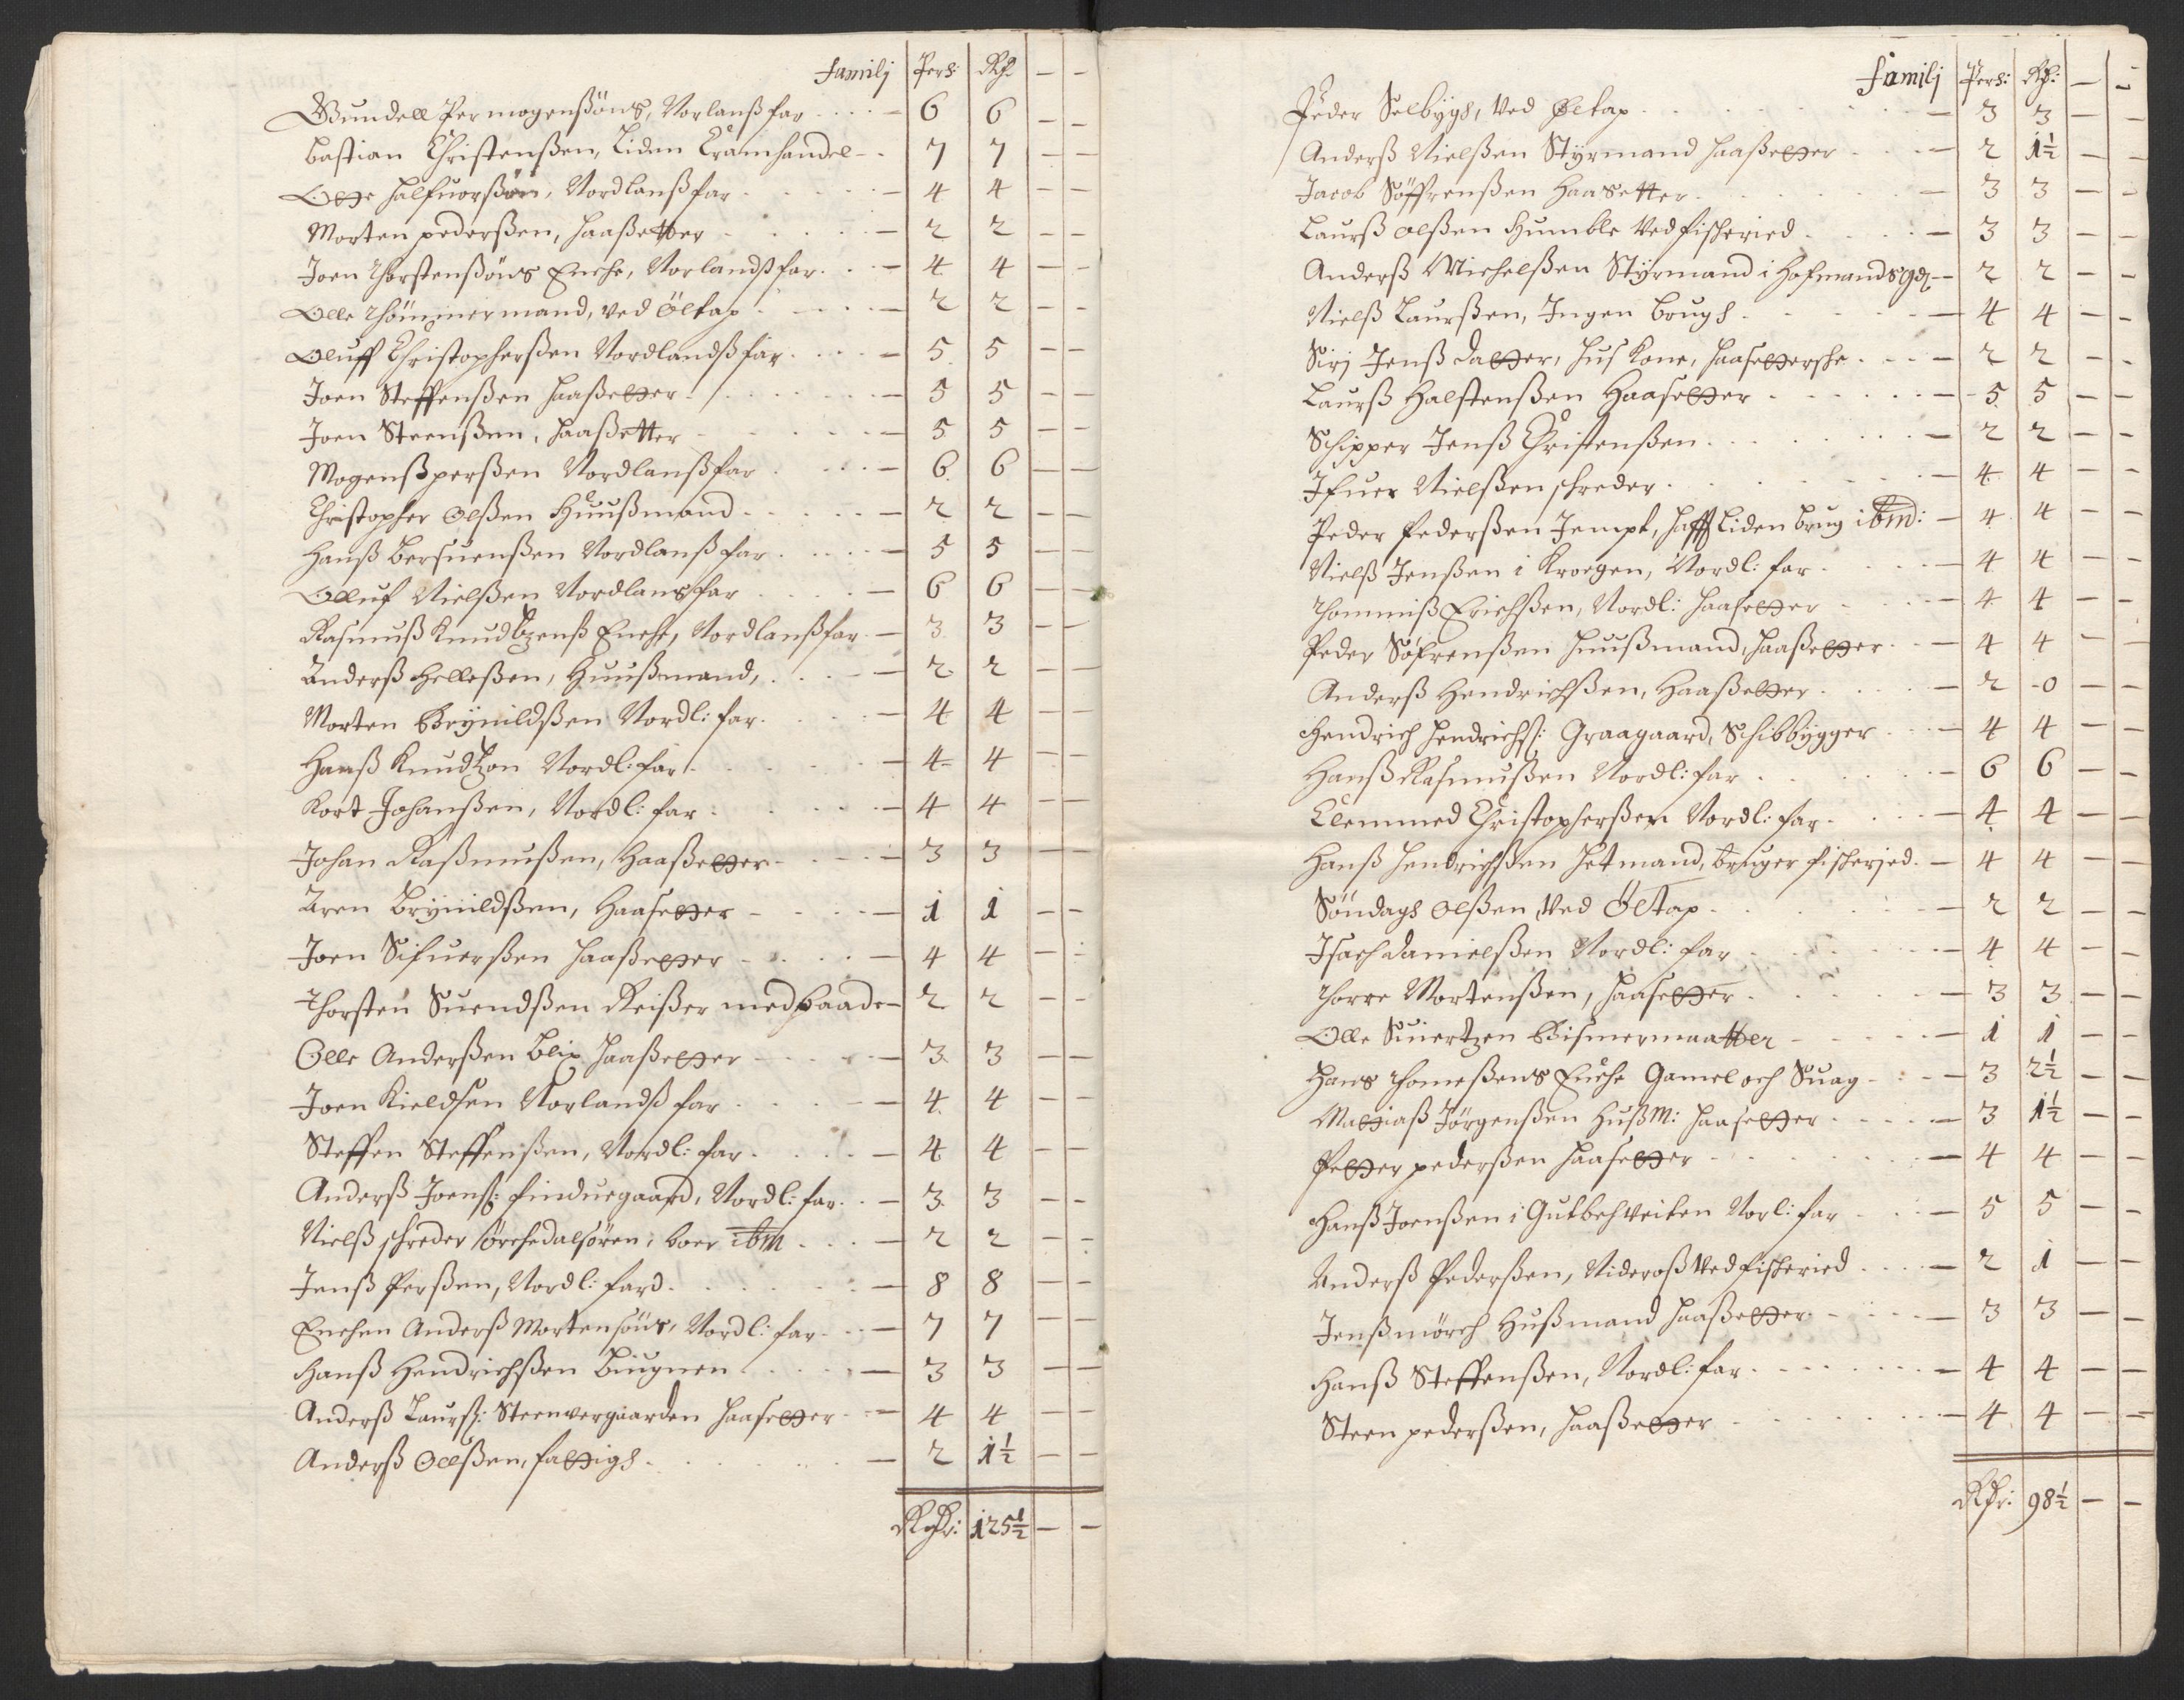 familj Pers: Rdr — —
Gundell Per mogensßøns, Norlanß far 6 6 — —
Bastian Christensßen, Liden Cramhandel 7 7 — —
Otte Halfuorsßøn, Nordlanß far 4 4 — —
Morten pederßen, Haaßetter 2 2 — —
Joen Thorstenßøns Enche, Norlandß far 4 4 — —
Olle Thömmermand, ved Öltap 2 2 — —
Oluff Christopherßen Nordlandß far 5 5 — —
Joen Steffenßen Haaßetter 5 5 — —
Joen Steenßen, Haaßetter 5 5 — —
Mogenß perßen Nordlanß far 6 6 — —
Christopher Olßen Huußmand 2 2 — —
Hanß Bersuenßen Nordlanß far 5 5 — —
Olluf Nielßen Nordlans far 6 6 — —
Rasmuß Knudtzenß Enche, Nordlanß far 3 3 — —
Anderß Helleßen, Huußmand, 2 2 — —
Morten Brynildßen Nordl: far 4 4 — —
Hanß Knudtzon Nordl: far 4 4 — —
Kort Johanßen, Nordl: far 4 4 — —
Johan Raßmußen, Haaßetter 3 3 — —
Aren Brynildßen, Haasetter 1 1 — —
Joen Sifuerßen Haaßetter 4 4 — —
Thorsten Suendßen Reißer med Baade 2 2 — —
Olle Anderßen Blix Haaßetter 3 3 — —
Joen Kieldsen Norlandß far 4 4 — —
Steffen Steffenßen, Nordl: far 4 4 — —
Anderß Joenß: finduegaard, Nordl: far 3 3 — —
Nielß schreder Örchedalsören, boer ibm 2 2 — —
Jenß Perßen, Nordl: fard 8 8 — —
Enchen Anderß Mortensöns, Nordl: far 7 7 — —
Hanß Hendrichßen Biugnen 3 3 — —
Anderß Laurß: Steenvergaarden Haasetter 4 4 — —
Anderß Olßen, fattigh 2 1½ — —
Rdr: 125½ — —
familj Pers: Rdr: — —
Peder Selbygh, Ved Öltap 3 3 — —
Anderß Nielßen Styrmand Haaßetter 2 1½ — —
Jacob Söffrenßen Haasetter 3 3 — —
Laurß Olßen Humble Ved fischeried 3 3 — —
Anderß Michelßen Styrmand i Hofmands gd 2 2 — —
Nielß Laurßen, Ingen Brugh 4 4 — —
Sirj Jenß datter, Hus Kone, Haasettersche 2 2 — —
Laurß Halstenßen Haasetter 5 5 — —
Schipper Jenß Christenßen 2 2 — —
Ifuer Nielßen schreder 4 4 — —
Peder Pederßen Jempt, Haffr Liden Brug ibm: 4 4 — —
Nielß Jenßen i Kroegen, Nordl: far 4 4 — —
Thommiß Erichßen, Nordl: Haasetter 4 4 — —
Peder Söfrenßen Huußmand, Haaßetter 4 4 — —
Anderß Hendrichßen, Haaßetter 2 0 — —
Hendrich Hendrichß: Graagaard, Schibbygger 4 4 — —
Hanß Rasmußen Nordl: far 6 6 — —
Clemmed Christopherßen Nordl: far 4 4 — —
Hanß Hendrichßen Hetmand, bruger fischerjed 4 4 — —
Söndagh Olßen, Ved Öltap 2 2 — —
Isach Danielßen Nordl: far 4 4 — —
Thorre Mortenßen, Haasetter 3 3 — —
Olle Siuertzen Bismermaatter 1 1 — —
Hans Thomeßens Enche Gamel och Suag 3 2½ — —
Mattiaß Jörgenßen Hußm: Haasetter 3 1½ — —
Petter pederßen Haasetter 4 4 — —
Hanß Joenßen i Gulbechveiten Norl: far 5 5 — —
Anderß Pederßen, Nideroß Ved fischeried 2 1 — —
Jenß mörch Hußmand Haaßetter 3 3 — —
Hanß Steffenßen, Nordl: far 4 4 — —
Steen pederßen, Haaßetter 4 4 — —
Rdr: 98½ — —